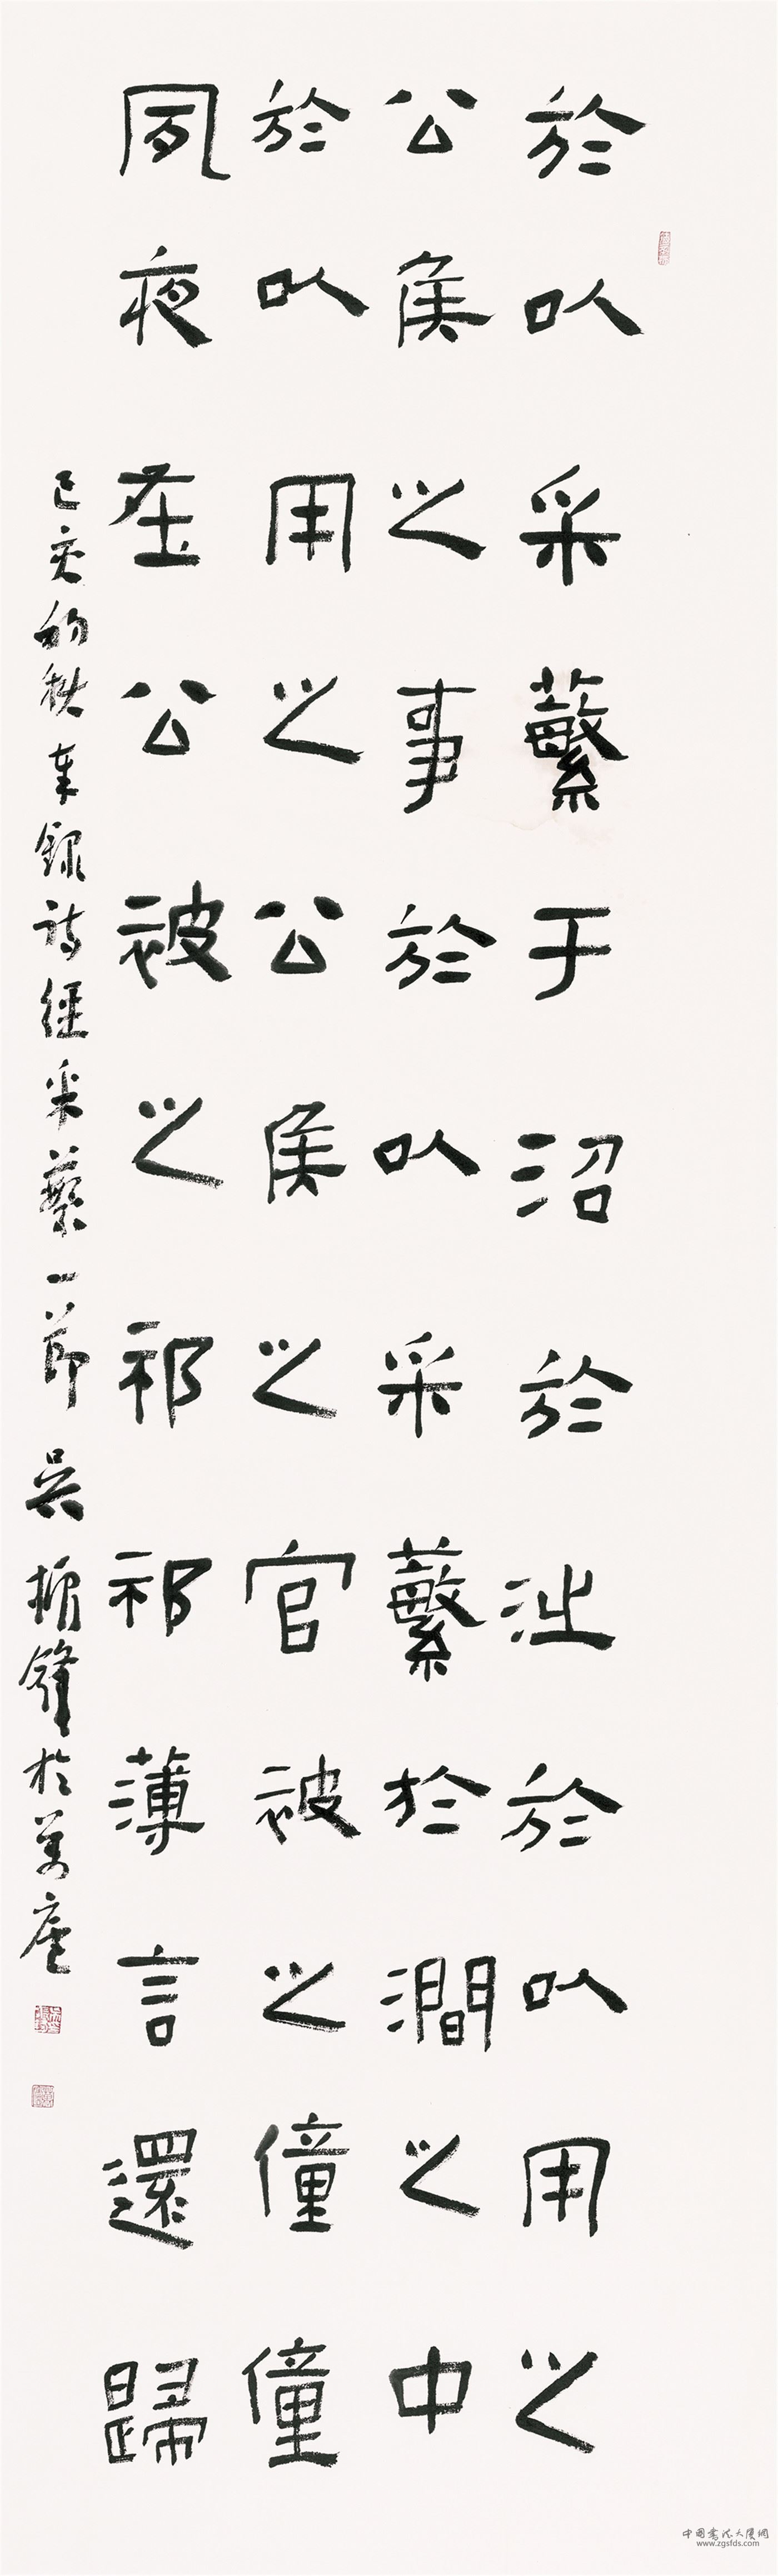 於以采蘩于沼於沚於以用之
公侯之事於以采蘩於澗之中
於以用之公侯之官被之僮僮
夙夜在公被之祁祁薄言還歸
己亥初秋奉錄詩經采蘩一節 吳增鋒於萬廬
中国书法大厦網
www.zgsfds.com